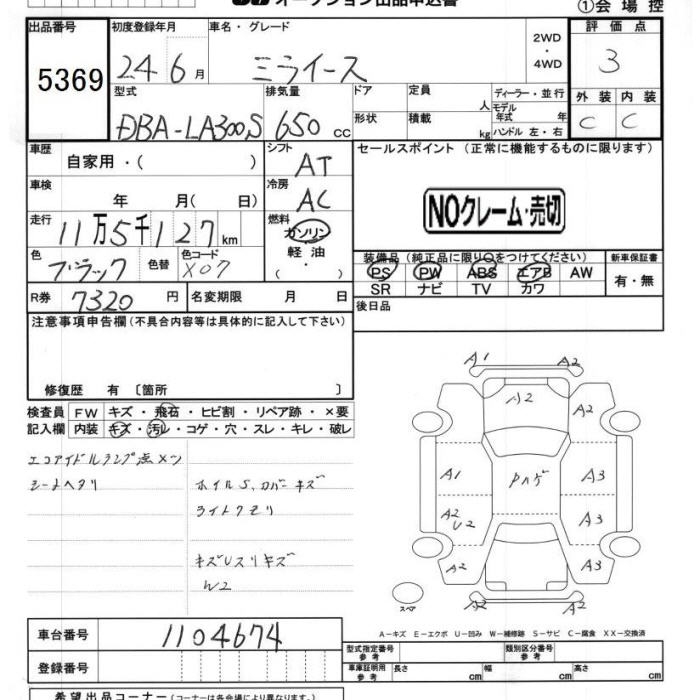 オークション出品申込書
①会場控
出品番号 初度登録年月 車名・グレード 2WD・4WD 評価点
5369 24 6月 ミライース 3
型式 排気量 ドア 定員 人 ディーラー・並行 外装 内装
DBA-LA300S 650cc 形状 積載 kg モデル年式 年 ハンドル 左・右 C C
車歴 自家用・( ) シフト AT セールスポイント (正常に機能するものに限ります)
車検 年 月( 日) 冷房 AC
NOクレーム・売切
走行 11万5千127km 燃料 ガソリン 軽油 ・( )
色 ブラック 色替 色コード X07
装備品(純正品に限り○をつけてください) 新車保証書
PS PW ABS エアB AW 有・無
SR ナビ TV カワ
R券 7320円 名変期限 月 日 後日品
注意事項申告欄(不具合内容等は具体的に記入して下さい)
修復歴 有 〔箇所 〕
検査員 FW キズ・飛石・ヒビ割・リペア跡・×要
記入欄 内装 キズ・汚レ・コゲ・穴・スレ・キレ・破レ
エコアイドルランプ点メン
シートヘタリ ホイルS,カバーキズ
ライトクモリ
キズUスリキズ
W2
A1 A2
A2 A2
A1 Pハゲ A3
A2 U2 A3
A2 A3
A2 A2
スペア
A-キズ E-エクボ U-凹み W-補修跡 S-サビ C-腐食 XX-交換済
車台番号 1104674
型式指定番号 参考 類別区分番号 参考
登録番号 車庫証明用 参考 長さ cm 幅 cm 高さ cm
希望出品コーナー(コーナーは各会場により異なります)